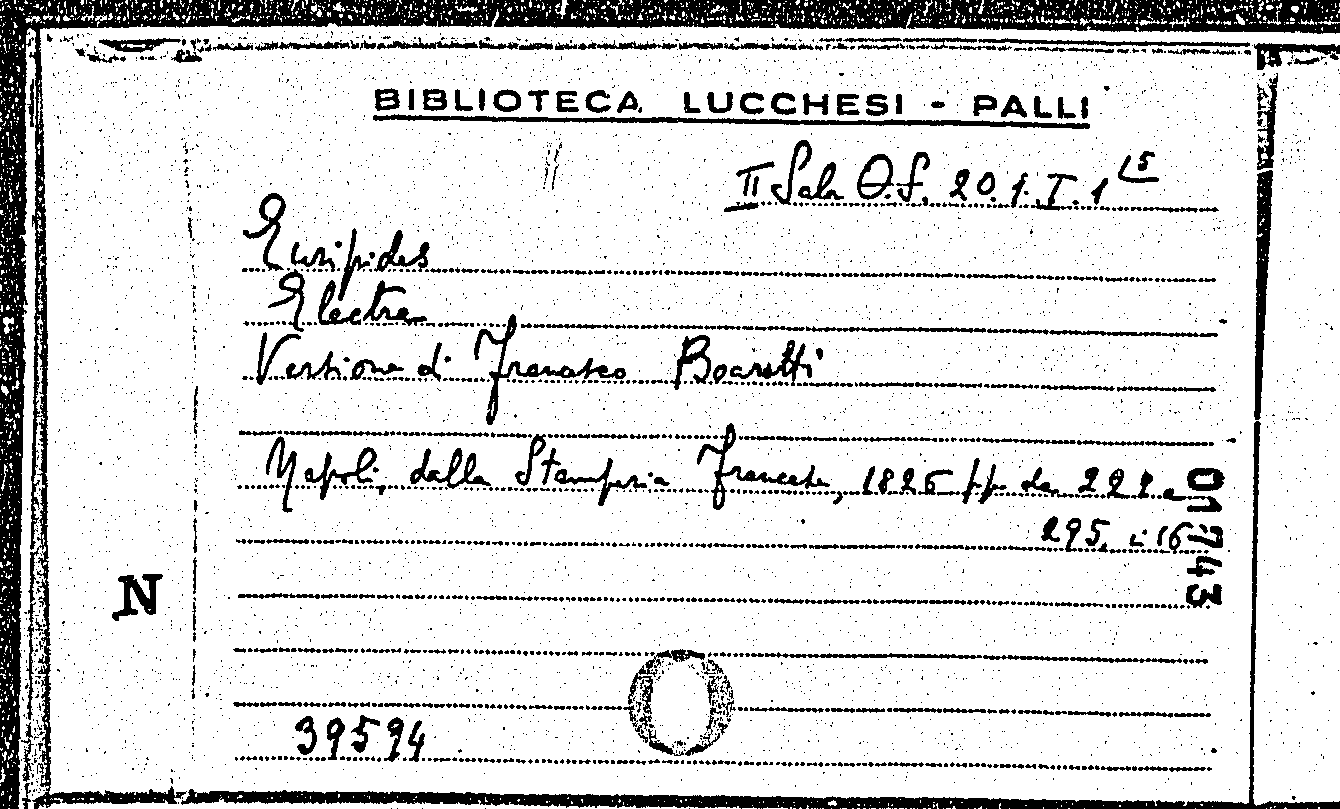 BIBLIOTECA LUCCHESI - PALLI
II Sala O.S. 20.1.I.1 15
Euripides
Electra
Versione di Francesco Boaretti
Napoli, dalla Stamperia Francese, 1826 pp. da 229 a
295. in 16
01743
N
39594